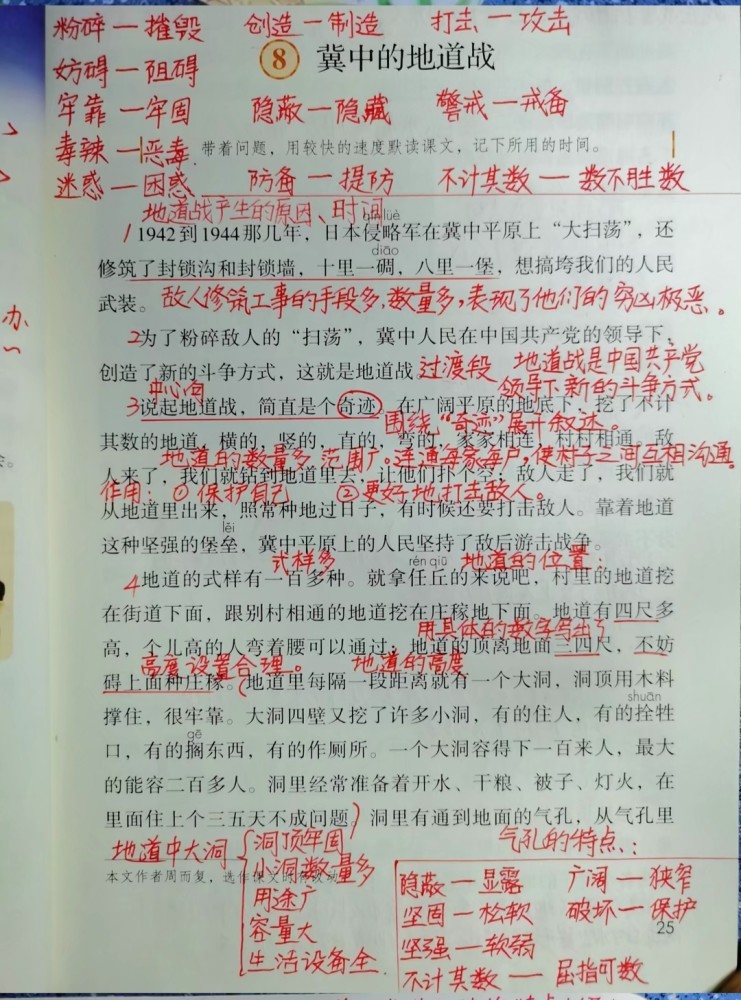 粉碎—摧毁 创造—制造 打击—攻击
8 冀中的地道战
妨碍—阻碍
牢靠—牢固 隐蔽—隐藏 警戒—戒备
毒辣—恶毒
带着问题，用较快的速度默读课文，记下所用的时间。
迷惑—困惑 防备—提防 不计其数—数不胜数
地道战产生的原因、时间
qīn lüè
1 1942到1944那几年，日本侵略军在冀中平原上“大扫荡”，还
diāo
修筑了封锁沟和封锁墙，十里一碉，八里一堡，想搞垮我们的人民
武装。 敌人修筑工事的手段多，数量多，表现了他们的穷凶极恶。
2为了粉碎敌人的“扫荡”，冀中人民在中国共产党的领导下，
创造了新的斗争方式，这就是地道战。过渡段 地道战是中国共产党
中心句 领导下新的斗争方式。
3说起地道战，简直是个奇迹。在广阔平原的地底下，挖了不计
围绕“奇迹”展开叙述。
其数的地道，横的，竖的，直的，弯的，家家相连，村村相通。敌
地道的数量多 范围广。连通每家每户，使村子之间互相沟通。
人来了，我们就钻到地道里去，让他们扑个空；敌人走了，我们就
作用：①保护自己 ②更好地打击敌人。
从地道里出来，照常种地过日子，有时候还要打击敌人。靠着地道
lěi
这种坚强的堡垒，冀中平原上的人民坚持了敌后游击战争。
式样多 rén qiū 地道的位置：
4地道的式样有一百多种。就拿任丘的来说吧，村里的地道挖
在街道下面，跟别村相通的地道挖在庄稼地下面。地道有四尺多
用具体的数字写出了
高，个儿高的人弯着腰可以通过；地道的顶离地面三四尺，不妨
高度设置合理。 地道的高度
碍上面种庄稼。地道里每隔一段距离就有一个大洞，洞顶用木料
shuān
撑住，很牢靠。大洞四壁又挖了许多小洞，有的住人，有的拴牲
gē
口，有的搁东西，有的作厕所。一个大洞容得下一百来人，最大
的能容二百多人。洞里经常准备着开水、干粮、被子、灯火，在
里面住上个三五天不成问题。洞里有通到地面的气孔，从气孔里
地道中大洞 洞顶牢固 气孔的特点：
小洞数量多
本文作者周而复，选作课文时有改动。
用途广
容量大
生活设备全
隐蔽—显露 广阔—狭窄
坚固—松软 破坏—保护
坚强—软弱
不计其数—屈指可数
25
办